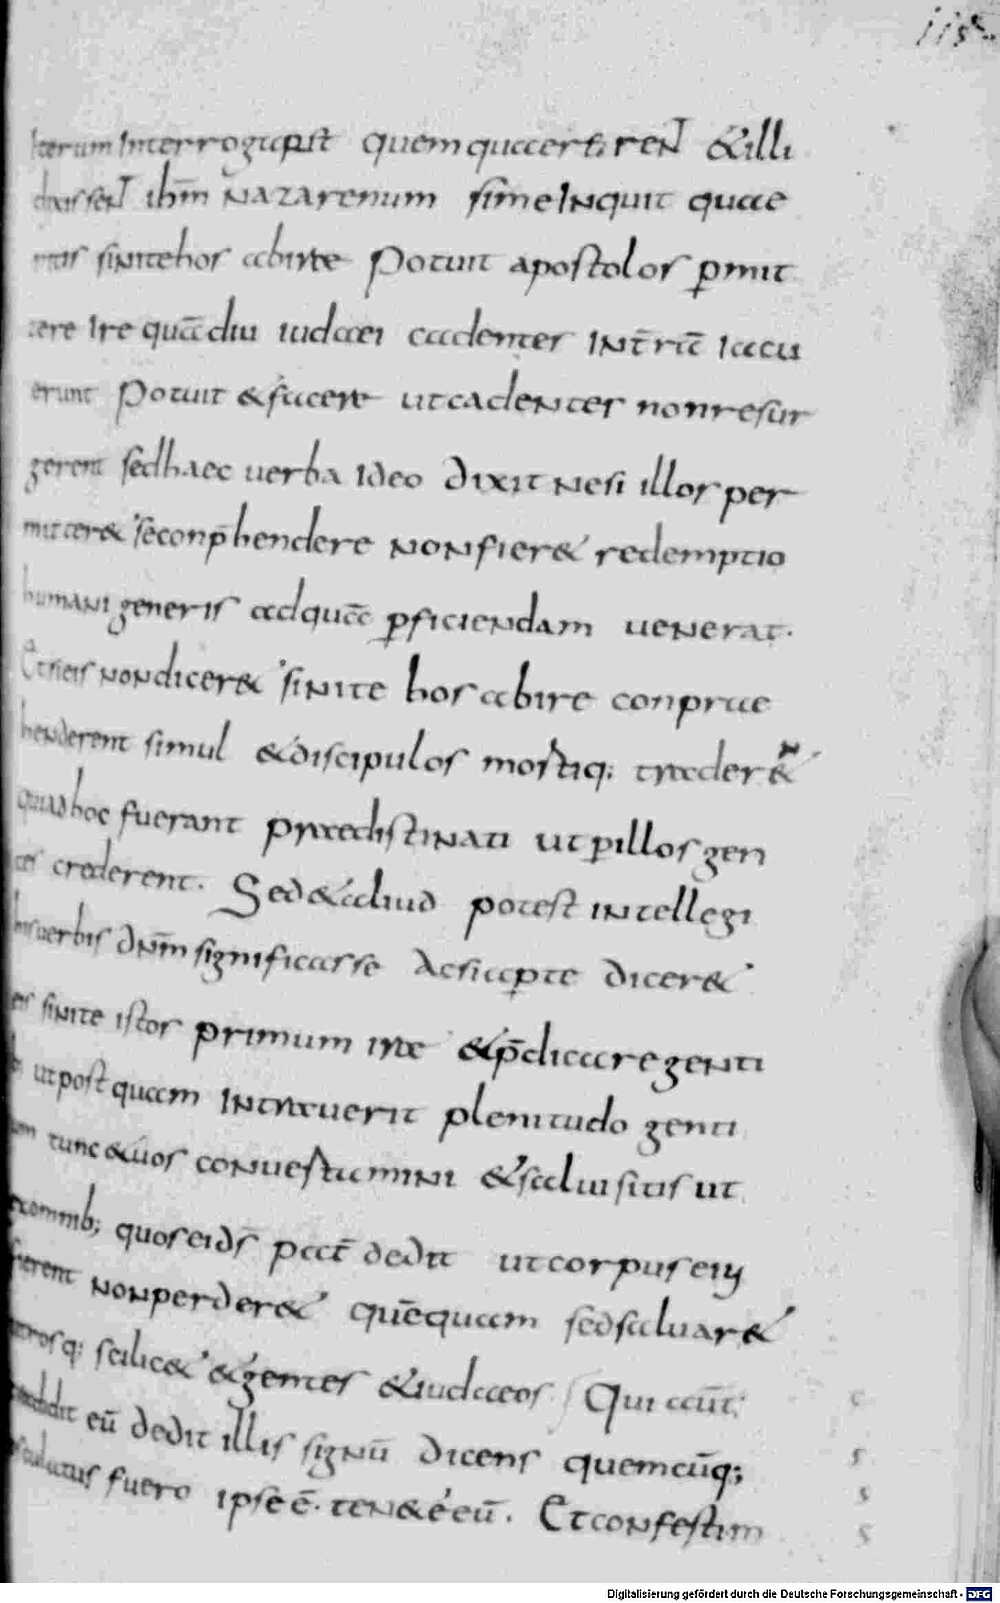 115
Iterum Interrogati st quem quaererent & illi
dixissent ihm̄ nazarenum sime Inquit quae
ritis sinite hos abire Potuit apostolos p̄mit
tere Ire quādiu iudaei cadentes Int̄rā Iacu
erunt Potuit & facere ut cadentes non resur
gerent sed haec uerba Ideo dixit nesi illos per
mitter& se conp̄hendere non fier& redemptio
humani generis ad quā ꝑficiendam uenerat.
Et si eis non dicer& sinite hos abire conprae
henderent simul & discipulos mortiq; trader&
qui ad hoc fuerant praedistinati ut ꝑ illos gen
tes crederent. Sed & aliud potest intellegi
his uerbis dn̄m significasse Ac si aꝑte dicer&
eis sinite istos primum ire & p̄dicare genti
ut postquam Intrauerit plenitudo genti
um tunc & uos conuertamini & salui sitis ut
ex omnib; quos ei dš pat̄ dedit ut corpus eiꝰ
fierent non perder& quēquam sed saluar&
utrosq; scilic& & gentes & iudaeos. Qui aūt
tradidit eū dedit illis signū dicens quemcūq;
osculatus fuero ipse ē. ten&e eū. Et confestim